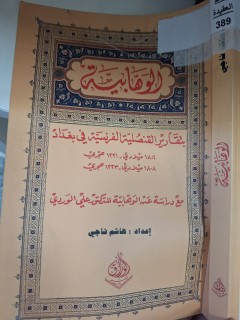 العقيدة
389
الوهابية
بتقارير القنصلية الفرنسية في بغداد
١٨٠٦ ميلادي - ١٢٢١ هجري
١٨٠٨ ميلادي - ١٢٢٣ هجري
مع دراسة عن الوهابية للدكتور علي الوردي
إعداد : هاشم ناجي
الوراق
الوهابية